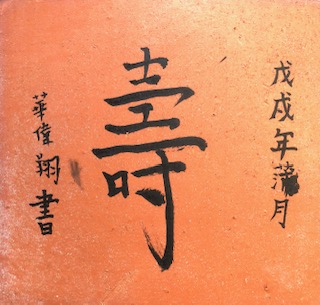 戊戌年蒲月
壽
華偉翔書